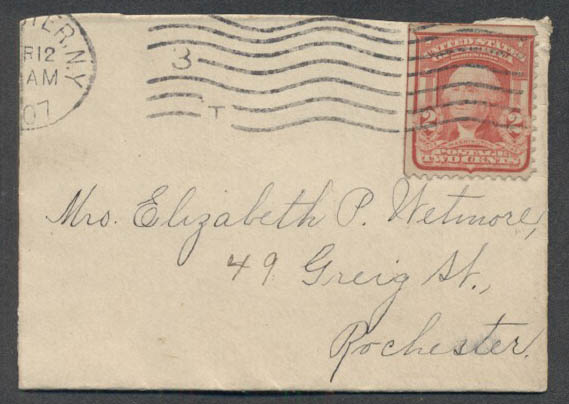 TER.N.Y.
R12
AM
07
3
T
UNITED STATES
2 2
POSTAGE
TWO CENTS
Mrs. Elizabeth P. Wetmore,
49 Greig St.,
Rochester.